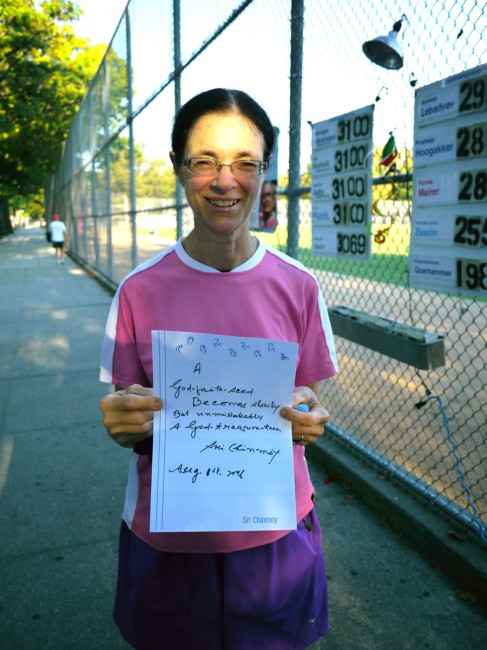 A
God-faith-seed
Becomes slowly
But unmistakably
A God-treasure-tree.
Sri Chinmoy
Aug 1st,
Sri Chinmoy
3100
3100
3100
3100
3069
Lebedyev 29
Hoogakker 28
Mairer 28
Zuscin 255
Querhammer 198